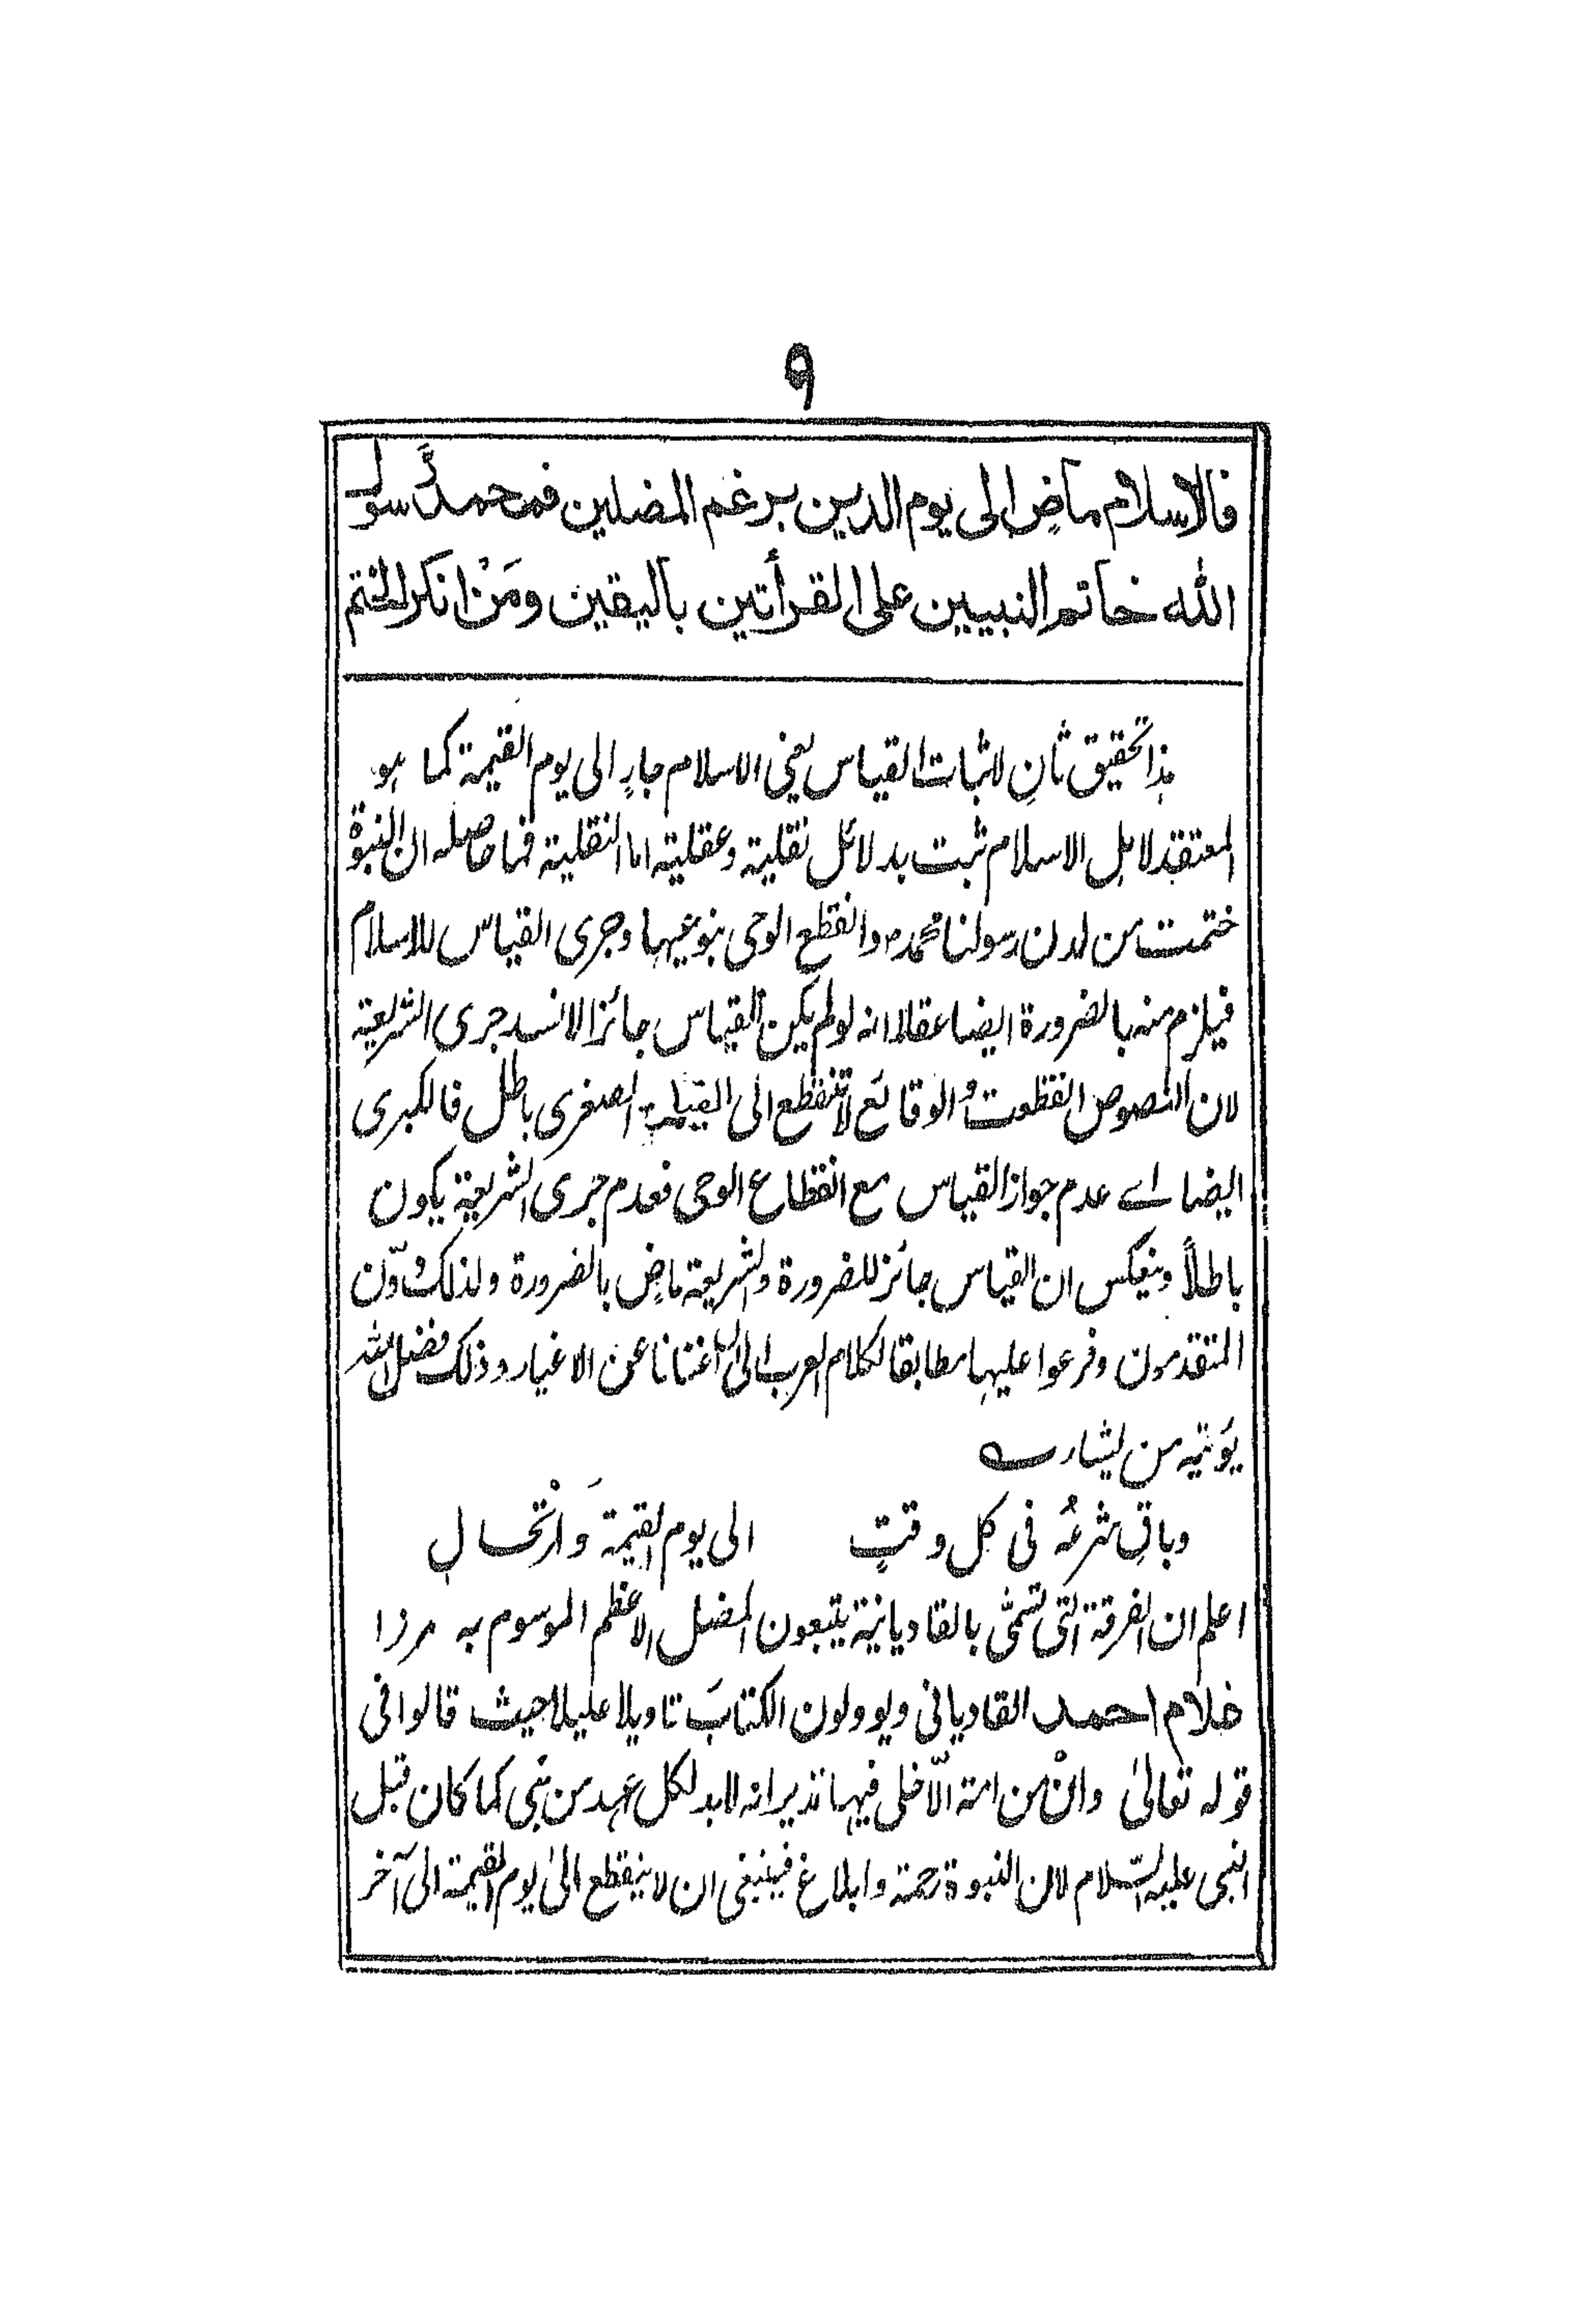 ٩
فالاسلام ماضٍ الى يوم الدين برغم المضلين فمحمدٌ رسول
الله خاتم النبيين على القرأتين باليقين ومَنْ انكر الختم
هذا تحقيق ثانٍ لاثبات القياس يعنى الاسلام جارٍ الى يوم القيمة كما هو
المعتقد لاهل الاسلام ثبت بدلائل نقلية وعقلية اما النقلية فما حاصله ان النبوة
ختمت من لدن رسولنا محمدؐ وانقطع الوحى بنوعيها وجرى القياس للاسلام
فيلزم منه بالضرورة ايضا عقلا انه لو لم يكن القياس جائزا لانسد جرى الشريعة
لان النصوص انقطعت والوقائع لا تنقطع الى القيامة الصغرى باطل فالكبرى
ايضا اے عدم جواز القياس مع انقطاع الوحى فعدم جرى الشريعة يكون
باطلاً وينعكس ان القياس جائز للضرورة والشريعة ماضٍ بالضرورة ولذلك دوّن
المتقدمون وفرعوا عليها مطابقا لكلام العرب الى اغنانا عن الاغيار وذلك فضل الله
يؤتيه من يشاء
وباقٍ شرعُه فى كل وقتٍ الى يوم القيمة وَارْتحال
اعلم ان الفرقة التى تسمّٰى بالقاديانية يتبعون المضل الاعظم الموسوم به مرزا
غلام احمد القاديانى ويوولون الكتابَ تاويلا عليلا حيث قالوا فى
قوله تعالىٰ وانْ من امة الّا خلى فيها نذير انه لا بد لكل عهد من نبى كما كان قبل
النبى عليه السّلام لان النبوة رحمة وابلاغ فينبغى ان لا ينقطع الىٰ يوم القيمة الى آخر